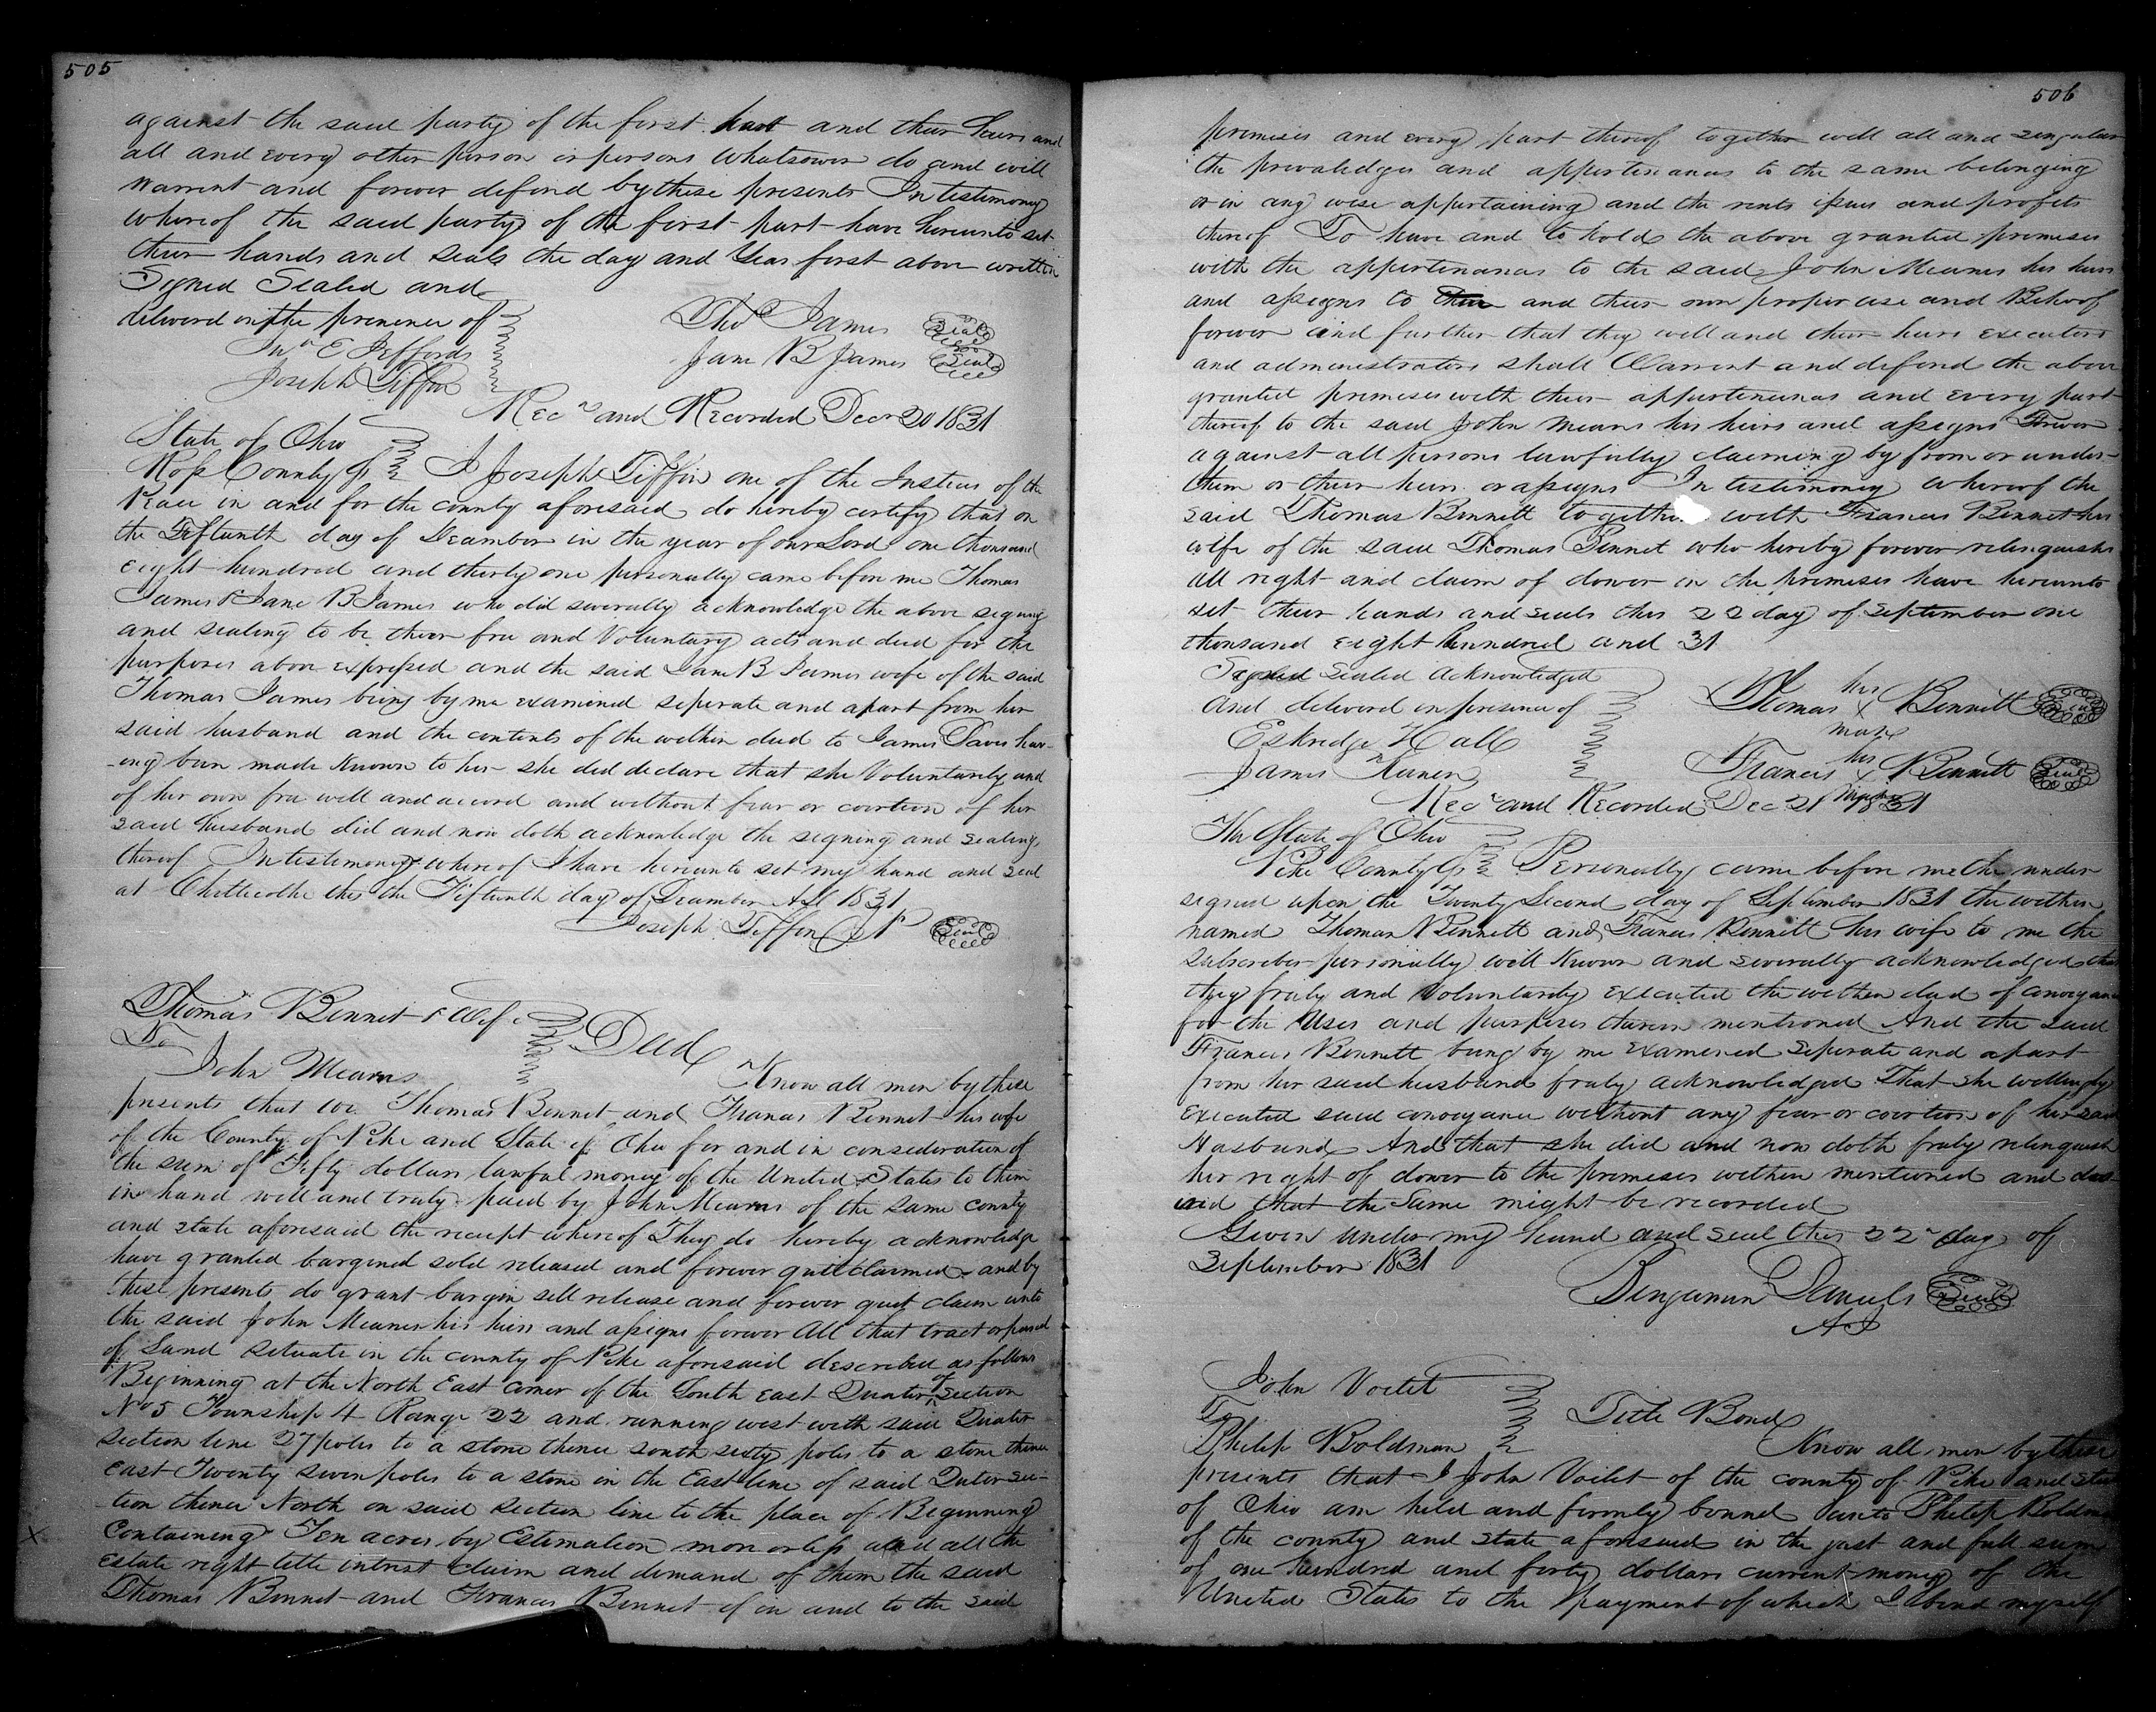 505
against the said party of the first part and their heirs and
all and every other person or persons whatsoever do and will
warrent and forever defend by these presents In testimony
whereof the said party of the first part have hereunto set
their hands and seals the day and Year first above written
Signed Sealed and
delivered in the presence of
Thos James Seal
Jno E Jeffords
Jane B James Seal
Joseph Tiffin
Recd and Recorded Decr 20 1831
State of Ohio
Ross County Ss I Joseph Tiffin one of the Justices of the
Peace in and for the county aforesaid do hereby certify that on
the Fifteenth day of December in the year of our Lord one thousand
eight hundred and thirty one personally came before me Thomas
James & Jane B James who did severally acknowledge the above signing
and sealing to be their free and Voluntary acts and deed for the
purposes above expressed and the said Jane B James wife of the said
Thomas James being by me examined seperate and apart from her
said husband and the contents of the within deed to James Davis hav-
-ing been made known to her she did declare that she Voluntarily and
of her own free will and accord and without fear or coertion of her
said husband did and now doth acknowledge the signing and sealing
thereof In testimony whereof I have hereunto set my hand and seal
at Chillicothe this the Fifteenth day of December AD 1831
Joseph Tiffin JP Seal
Thomas Bennet & Wife
To Deed
John Mearns Know all men by these
presents that we Thomas Bennet and Frances Bennet his wife
of the County of Pike and State of Ohio for and in consideration of
the sum of Fifty dollars lawful money of the United States to them
in hand well and truly paid by John Mearns of the same county
and state aforesaid the receipt whereof They do hereby acknowledge
have granted bargined sold released and forever quitclaimed and by
these presents do grant bargin sell release and forever quit claim unto
the said John Meanes his heirs and assigns forever All that tract or parcel
of Land situate in the county of Pike aforesaid described as follows
Beginning at the North East corner of the South east Quarter of Section
No 5 Township 4 Range 22 and running west with said Quater
section line 27 poles to a stone thence south sixty poles to a stone thence
east Twenty seven poles to a stone in the East line of said Quter sec-
tion thence North on said section line to the place of Beginning
Containing Ten acres by Estimation more or less and all the
estate right title intrest claim and demand of them the said
Thomas Bennet and Frances Bennet of in and to the said
506
premises and every part thereof together well all and singular
the prevaledges and appertenances to the same belonging
or in any wise appurtaining and the rents issues and profits
thereof To have and to hold the above granted premises
with the appertenances to the said John Meanes his heirs
and assigns to and their own proper use and Behoof
forever and further that they will and their heirs executors
and administrators shall Warrent and defend the above
granted premises with their appertenances and every part
thereof to the said John Means his heirs and assigns Forever
against all persons lawfully claiming by from or under
them or their heirs or assigns In testimony whereof the
said Thomas Bennett together with Frances Bennet his
wife of the said Thomas Bennet who hereby forever relinquishes
all right and claim of dower in the premises have hereunto
set their hands and seals this 22 day of september one
thousand eight hundred and 31
Signed Sealed acknowledged
and delivered in presence of
Thomas his x mark Bennett Seal
Eskredge Hall
James
Frances his x mark Bennett Seal
Recd and Recorded Dec 21 1831
The State of Ohio
Pike County Ss Personally came before me the under
signed upon the Twenty Second day of September 1831 the within
named Thomas Bennett and Frances Bennett his wife to me the
subscriber personially well Known and severally acknowledged that
they freely and Voluntarily executed the within deed of conveyance
for the Uses and purposes therein mentioned And the said
Frances Bennett being by me examened seperate and apart
from her said husband freely acknowledged That she willingly
executed said conveyance without any fear or coertion of her said
Husband And that she did and now doth freely relinquish
her right of dower to the premises within mentioned and des-
ired that the same might be recorded
Given under my hand and seal this 22d day of
September 1831
Benjamin Daniels Seal
AJ
John Voilet
To Title Bond
Philip Boldman Know all men by these
presents that I John Voilet of the county of Pike and State
of Ohio am held and firmly bound unto Philip Boldman
of the county and state aforesaid in the just and full sum
of one hundred and forty dollars current money of the
United States to the payment of which I bind myself